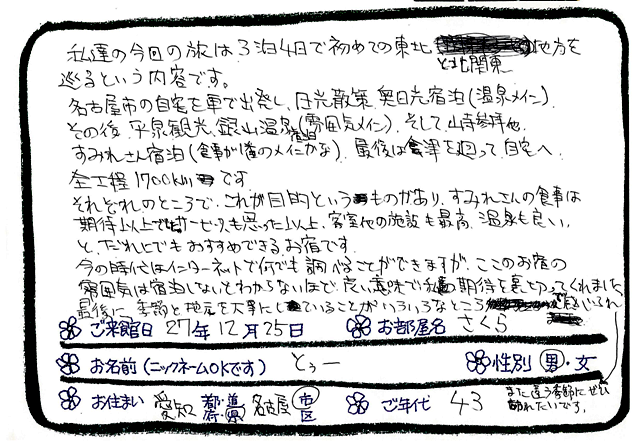 私達の今回の旅は3泊4日で初めての東北 地方を
と北関東
巡るという内容です。
名古屋市の自宅を車で出発し、日光散策、奥日光宿泊(温泉メイン)、
その後、平泉観光、銀山温泉宿泊(雰囲気メイン)、そして、山寺参拝他、
すみれさん宿泊(食事が1番のメインかな)、最後は会津を廻って、自宅へ
全工程1700kmです。
それぞれのところで、これが目的というものがあり、すみれさんの食事は
期待以上で サービスも思った以上、客室他の施設も最高、温泉も良い、
と、だれにでもおすすめできるお宿です。
今の時代はインターネットで何でも調べることができますが、ここのお宿の
雰囲気は宿泊しないとわからないほど、良い意味で私達の期待を裏切ってくれました
最後に、季節と地元を大事にしていることがいろいろなところ
ご来館日 27年12月25日 お部屋名 さくら
お名前(ニックネームOKです) とぅー 性別 男・女
お住まい 愛知 都・道・府・県 名古屋 市・区 ご年代 43
また違う季節にぜひ
訪れたいです。